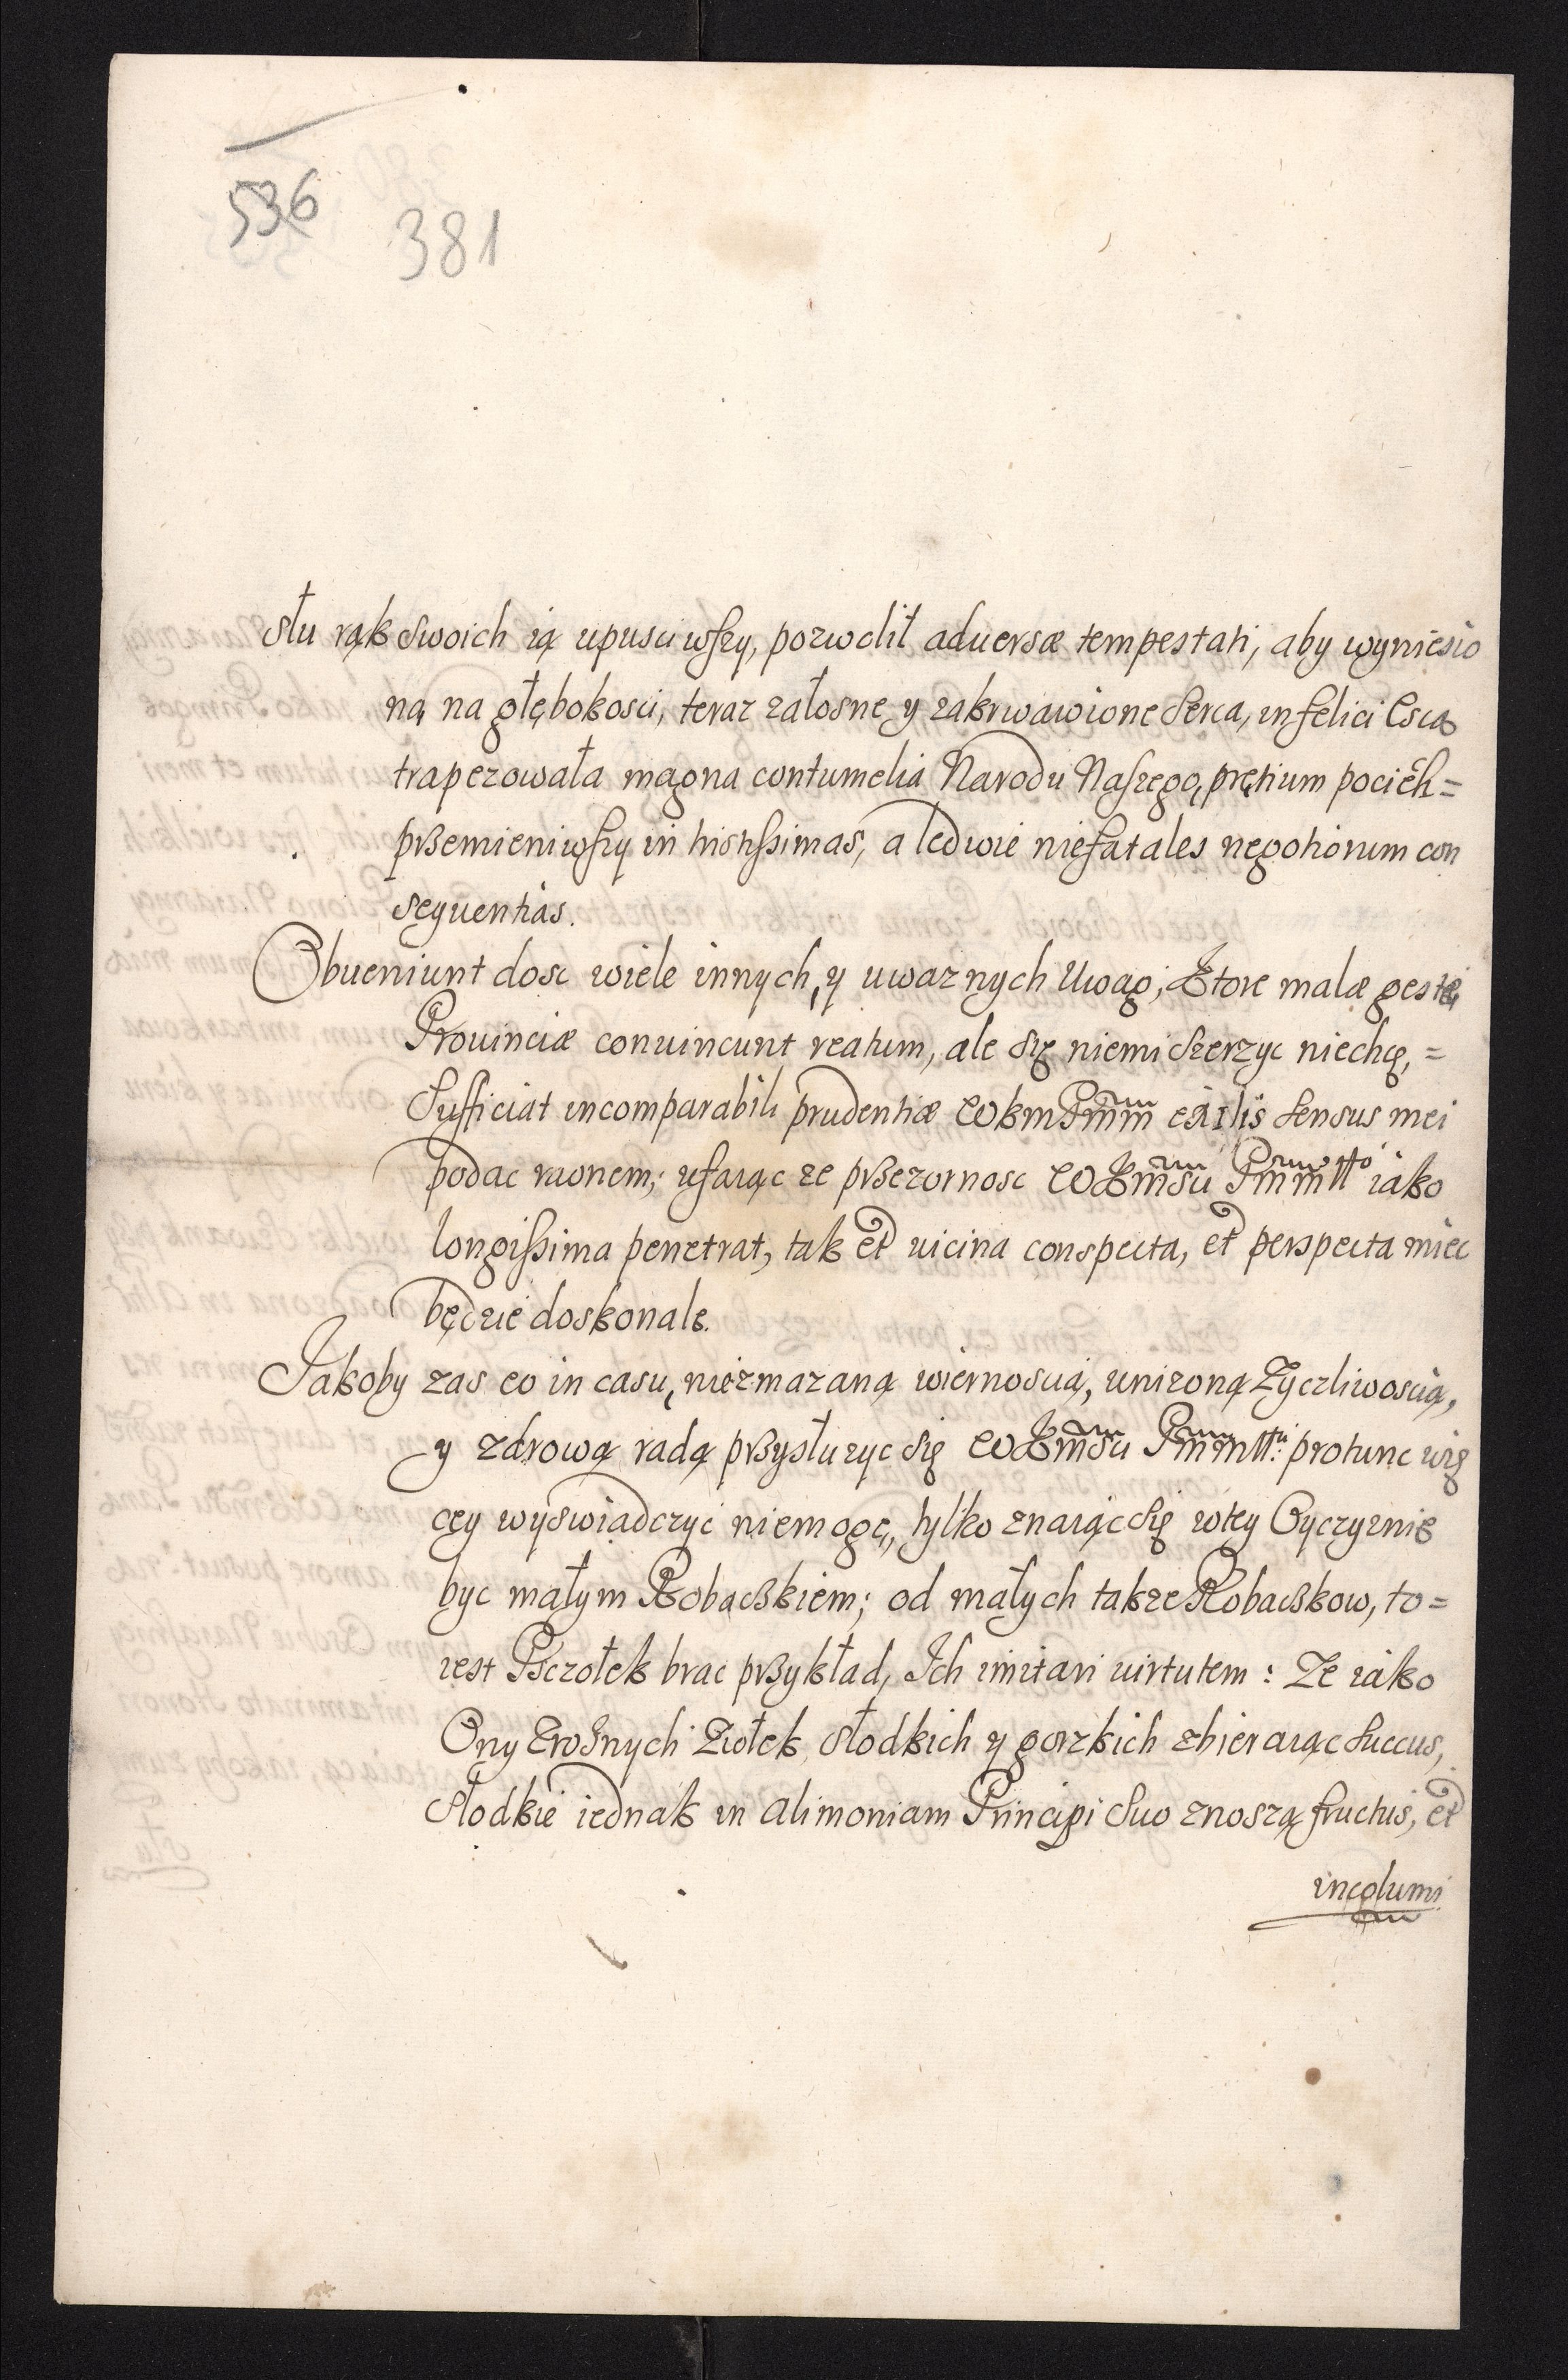 536
381
stu rąk Swoich ią upusciwszy, pozwolił aduersæ tempestati, aby wyniesio
na na głębokosci, teraz załosne y zakrwawione Serca, infelici Esca
trapezowała magna contumelia Narodu Naszego, prętium pociech=
przemieniwszy in tristissimas, a ledwie niefatales negotiorum con
sequentias.
Obueniunt dosc wiele innych, y uwaznych Uwag, Ktore malæ gestæ
Prouinciæ conuincunt reatum, ale się niemi szerzyc niechcę, =
Sufficiat incomparabili prudentiæ WKmPmm exilis sensus mei
podac racionem; ufaiąc ze przezornosc WKmsci Pmmtto iako
longissima penetrat, tak et uicina conspecta, et perspecta miec
będzie doskonale.
Jakoby zas eo in casu, niezmazaną wiernoscią, unizoną Zyczliwoscią,
y zdrową radą przysłuzyc się WKmsci Pmmtti: protunc wię
cey wyswiadczyć niemogę, tylko znaiąc się w tey Oyczyznie
byc małym Robaczkiem; od małych takze Robaczkow, to=
iest Psczołek brac przykład, Ich imitari uirtutem: Ze iako
Ony Zroznych Ziołek, Słodkich y gorzkich zbieraiąc Succus,
Słodkie iednak in alimoniam Principi Suo znoszą fructus, et
incolumi